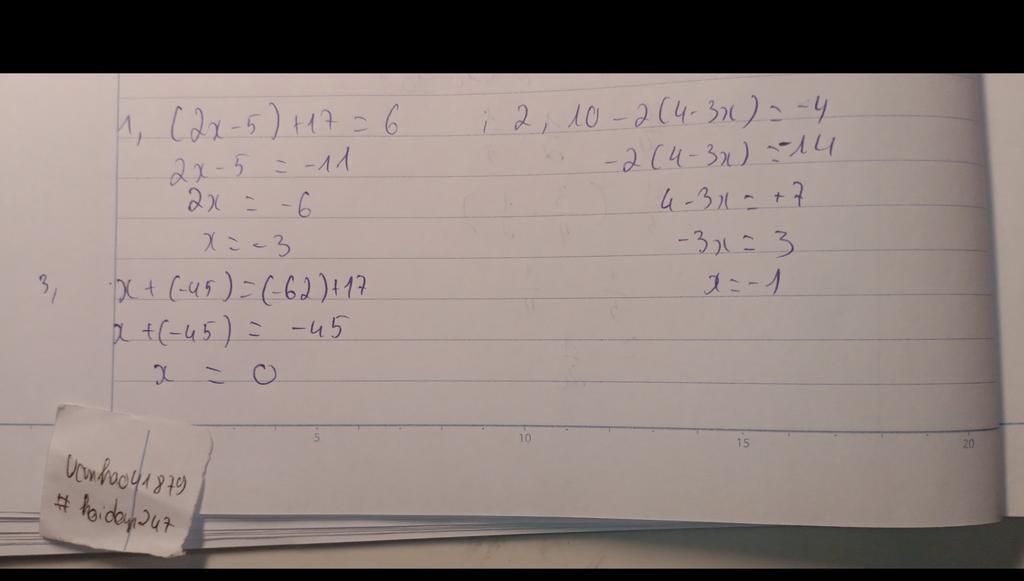 1, (2x-5)+17 = 6
2x-5 = -11
2x = -6
x = -3
; 2, 10-2(4-3x) = -4
-2(4-3x) = -14
4-3x = +7
-3x = 3
x = -1
3, x+(-45)=(-62)+17
x+(-45) = -45
x = 0
5 10 15 20
# hoidap247